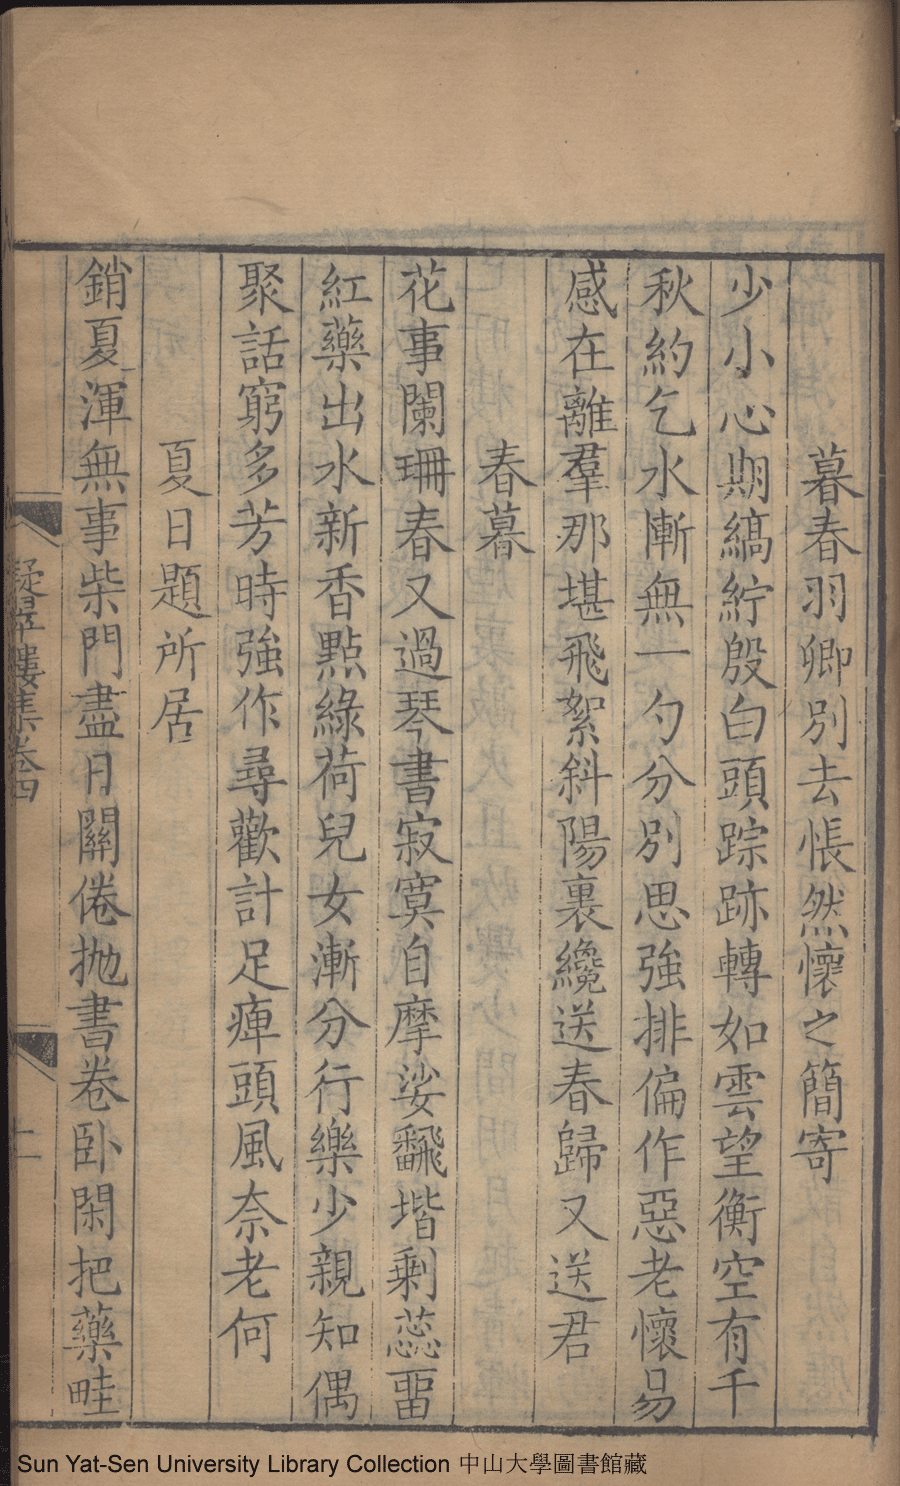 暮春羽卿別去悵然懷之簡寄
少小心期縞紵殷白頭踪跡轉如雲望衡空有千
秋約乞水慚無一勺分別思強排偏作惡老懷易
感在離羣那堪飛絮斜陽裏纔送春歸又送君
春暮
花事闌珊春又過琴書寂寞自摩娑飜堦剩蕊畱
紅藥出水新香點綠荷兒女漸分行樂少親知偶
聚話窮多芳時強作尋歡計足痺頭風奈老何
夏日題所居
銷夏渾無事柴門盡日關倦抛書卷卧閑把藥畦
凝翠樓集卷四
Sun Yat-Sen University Library Collection 中山大學圖書館藏